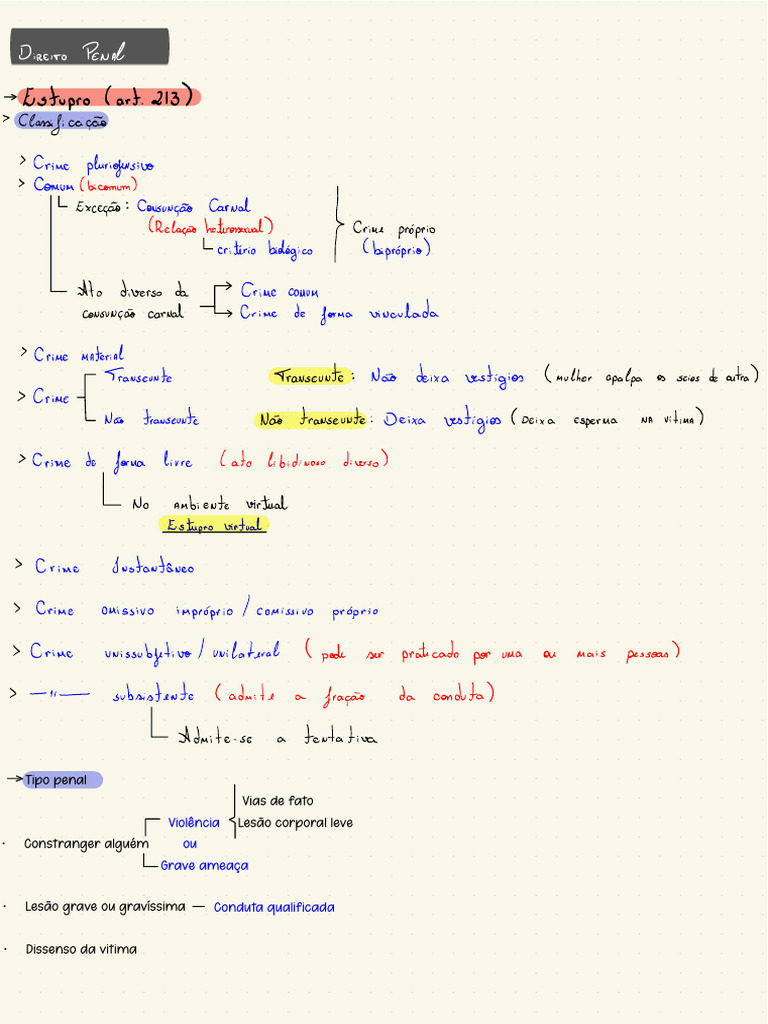 Direito Penal
→ Estupro (art. 213)
> Classificação
> Crime pluriofensivo
> Comum (bicomum)
Exceção: Consunção Carnal
(Relação heterosexual)
critério biológico
Crime próprio
(bipróprio)
Ato diverso da
consunção carnal
Crime comum
Crime de forma vinculada
> Crime material
> Crime
Transeunte
Não transeunte
Transeunte: Não deixa vestígios (mulher apalpa os seios de outra)
Não transeunte: Deixa vestígios (Deixa esperma na vítima)
> Crime de forma livre (ato libidinoso diverso)
No ambiente virtual
Estupro virtual
> Crime Instantâneo
> Crime omissivo impróprio / comissivo próprio
> Crime unissubjetivo / unilateral (pode ser praticado por uma ou mais pessoas)
> —"— subsistente (admite a fração da conduta)
Admite-se a tentativa
→ Tipo penal
· Constranger alguém
Violência
ou
Grave ameaça
Vias de fato
Lesão corporal leve
· Lesão grave ou gravíssima — Conduta qualificada
· Dissenso da vitima